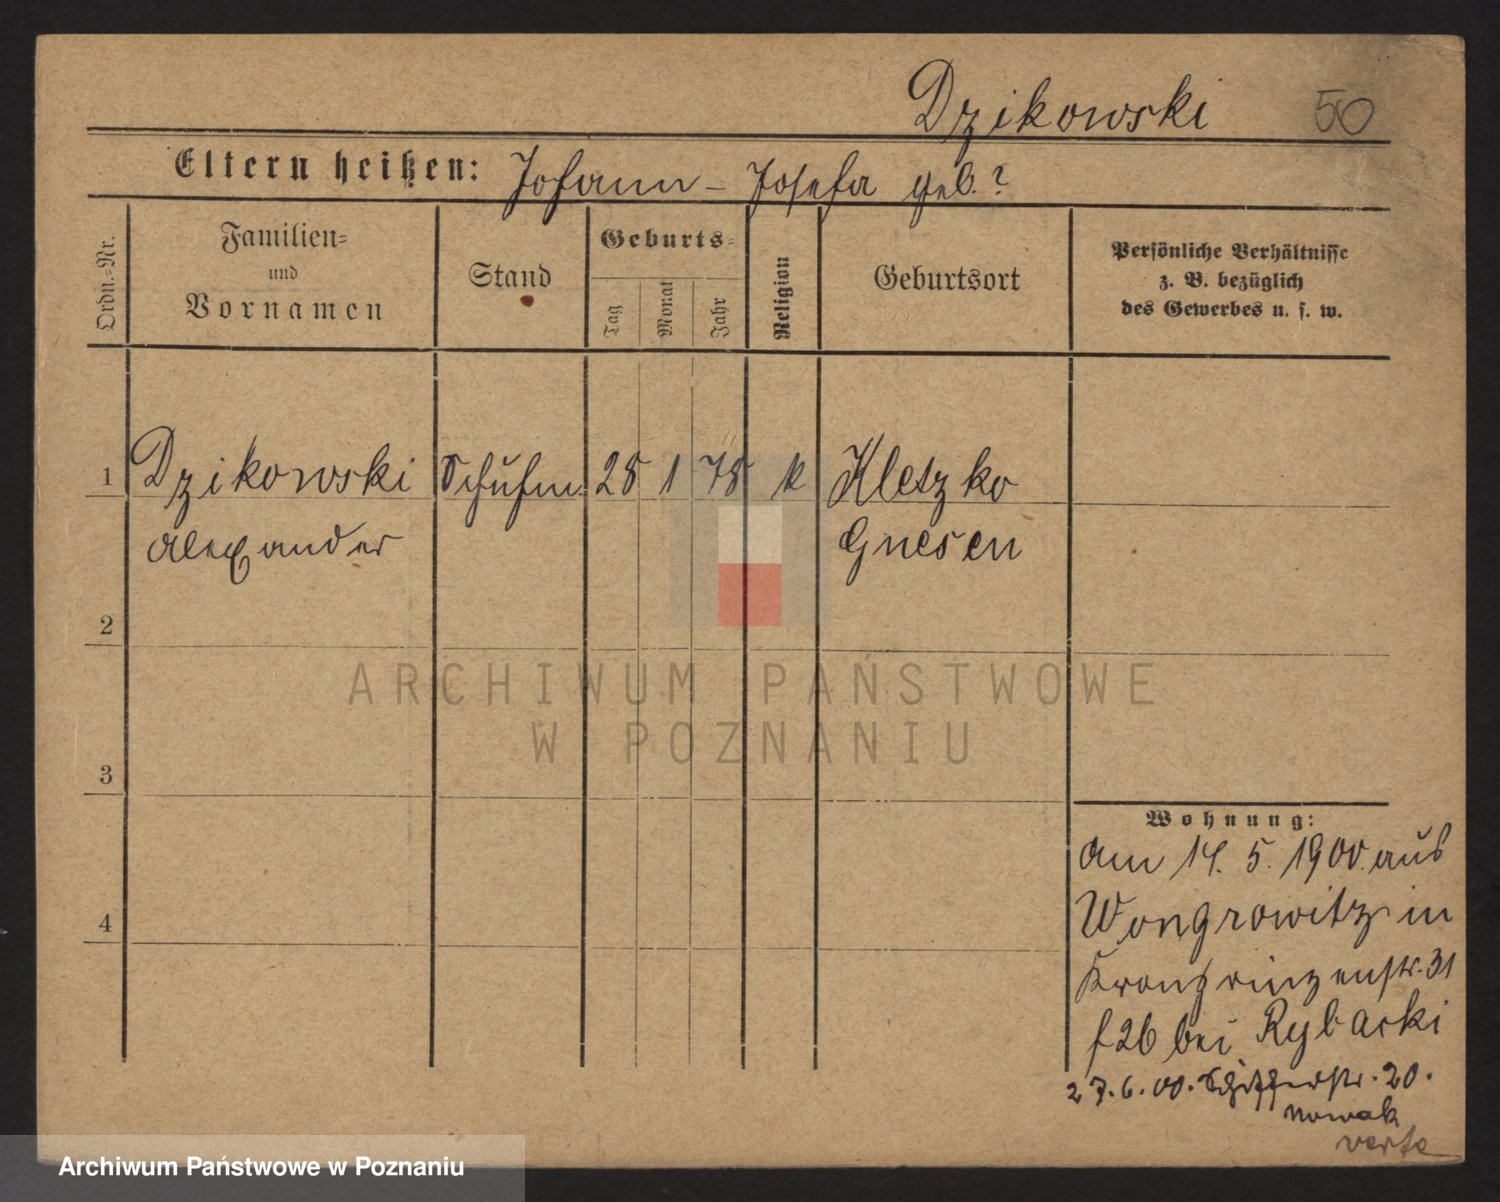 Dzikowski 50
Eltern heißen: Johann – Josefa geb. ?
Ordn.-Nr.
Familien-
und
Vornamen
Stand
Geburts-
Tag
Monat
Jahr
Religion
Geburtsort
Persönliche Verhältnisse
z. B. bezüglich
des Gewerbes u. s. w.
1 Dzikowski Schuhm. 28 1 78 k Kletzko
Alexander Gnesen
2
3
4
Wohnung:
Am 14. 5. 1900. aus
Wongrowitz in
Kronprinzenstr. 31
bei Rybacki
27.6.00. Schifferstr. 20.
Nowak
verte
ARCHIWUM PAŃSTWOWE
W POZNANIU
Archiwum Państwowe w Poznaniu